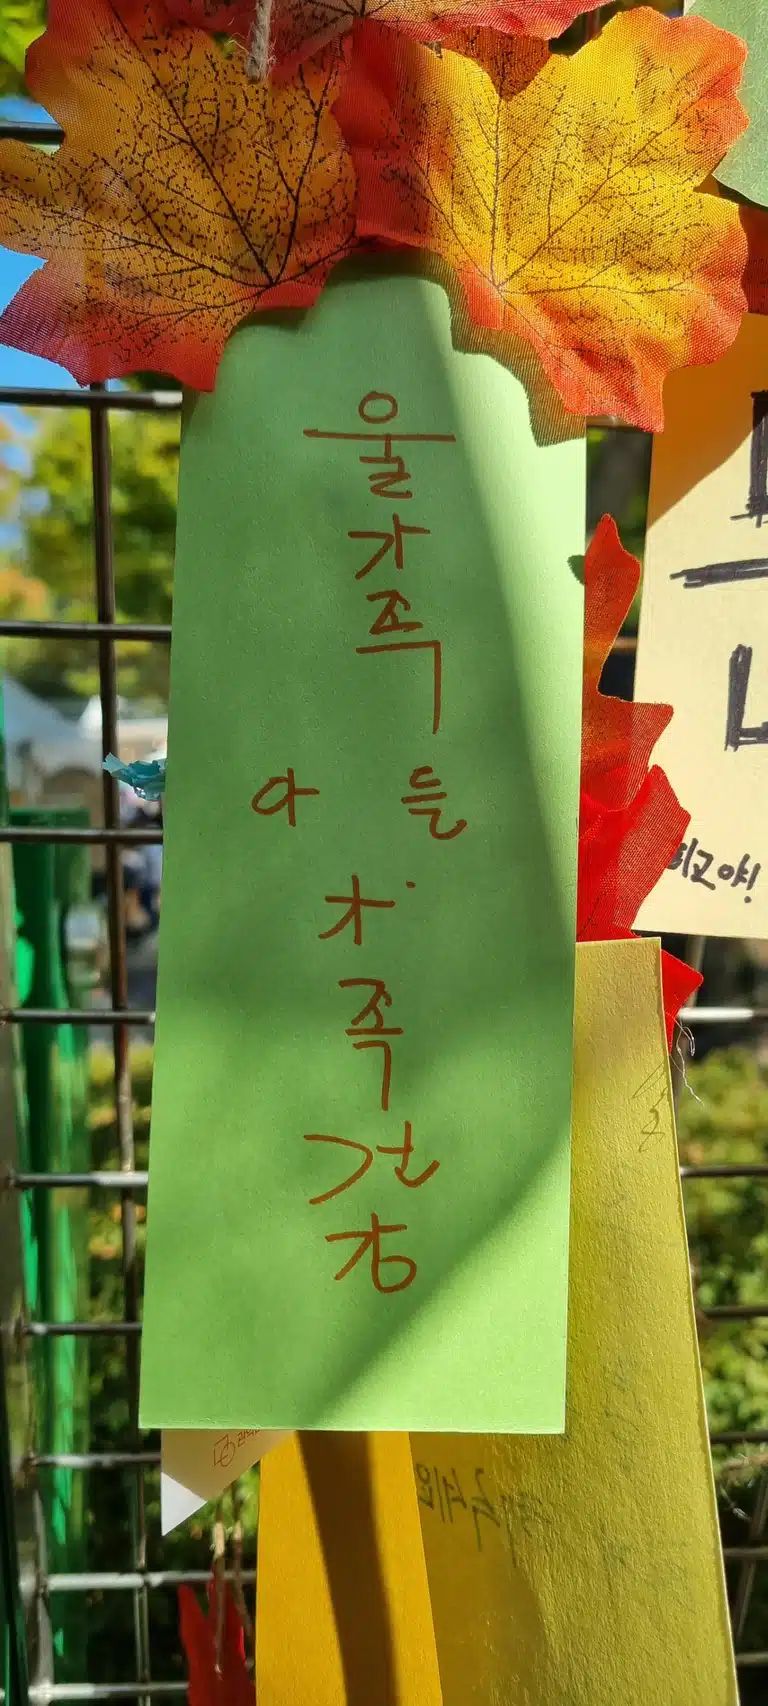 울
가
족
아 들
가
족
건
강
최고야!